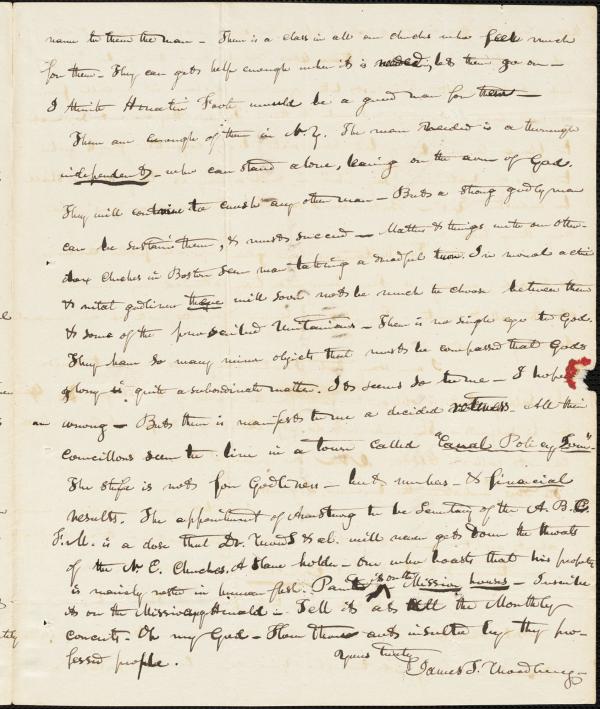 name to them the man - There is a class in all our chuches who feel much
for them - They can gets help enough when its is needed, lets them go on -
I think Horatio Foot would be a good man for them -
There are enough of them in N.Y. The man needed is a thorough
independents - who can stand alone, leaning on the arm of God.
They will contrive to crush any other man - Buts a strong godly man
can be sustain them, & musts succeed - Matters & things with our otho-
dox Chuches in Boston seem now taking a dreadful turn. In moral action
& vital godliness there will soon nots be much to choose between them
& some of the proscribed Unitarians - There is no single eye to God.
They have so many minor objects that musts be compassed that Gods
glory is quite a subordinate matter. Its seems so to me - I hope I
am wrong - Buts there is manifests to me a decided - All their
Councillors seem to live in a town called "Carnal Policy Town"
The strife is nots for Godliness - but numbers - & financial
results. The appointment of Armstrong to be Secretary of the A.B.C.
F.M. is a dose that Dr. & al. will never gets down the throats
of the N.E. Chuches. A Slave holder - One who boasts that his property
is mainly in human flesh. Paint its on the Mission houses - Inscribe
its on the Missionary Herald - Tell its ats all the Monthly
concerts. Oh my God - How thou arts insulted by thy pro-
fessed people.
Yours truly
James T. Woodbury -